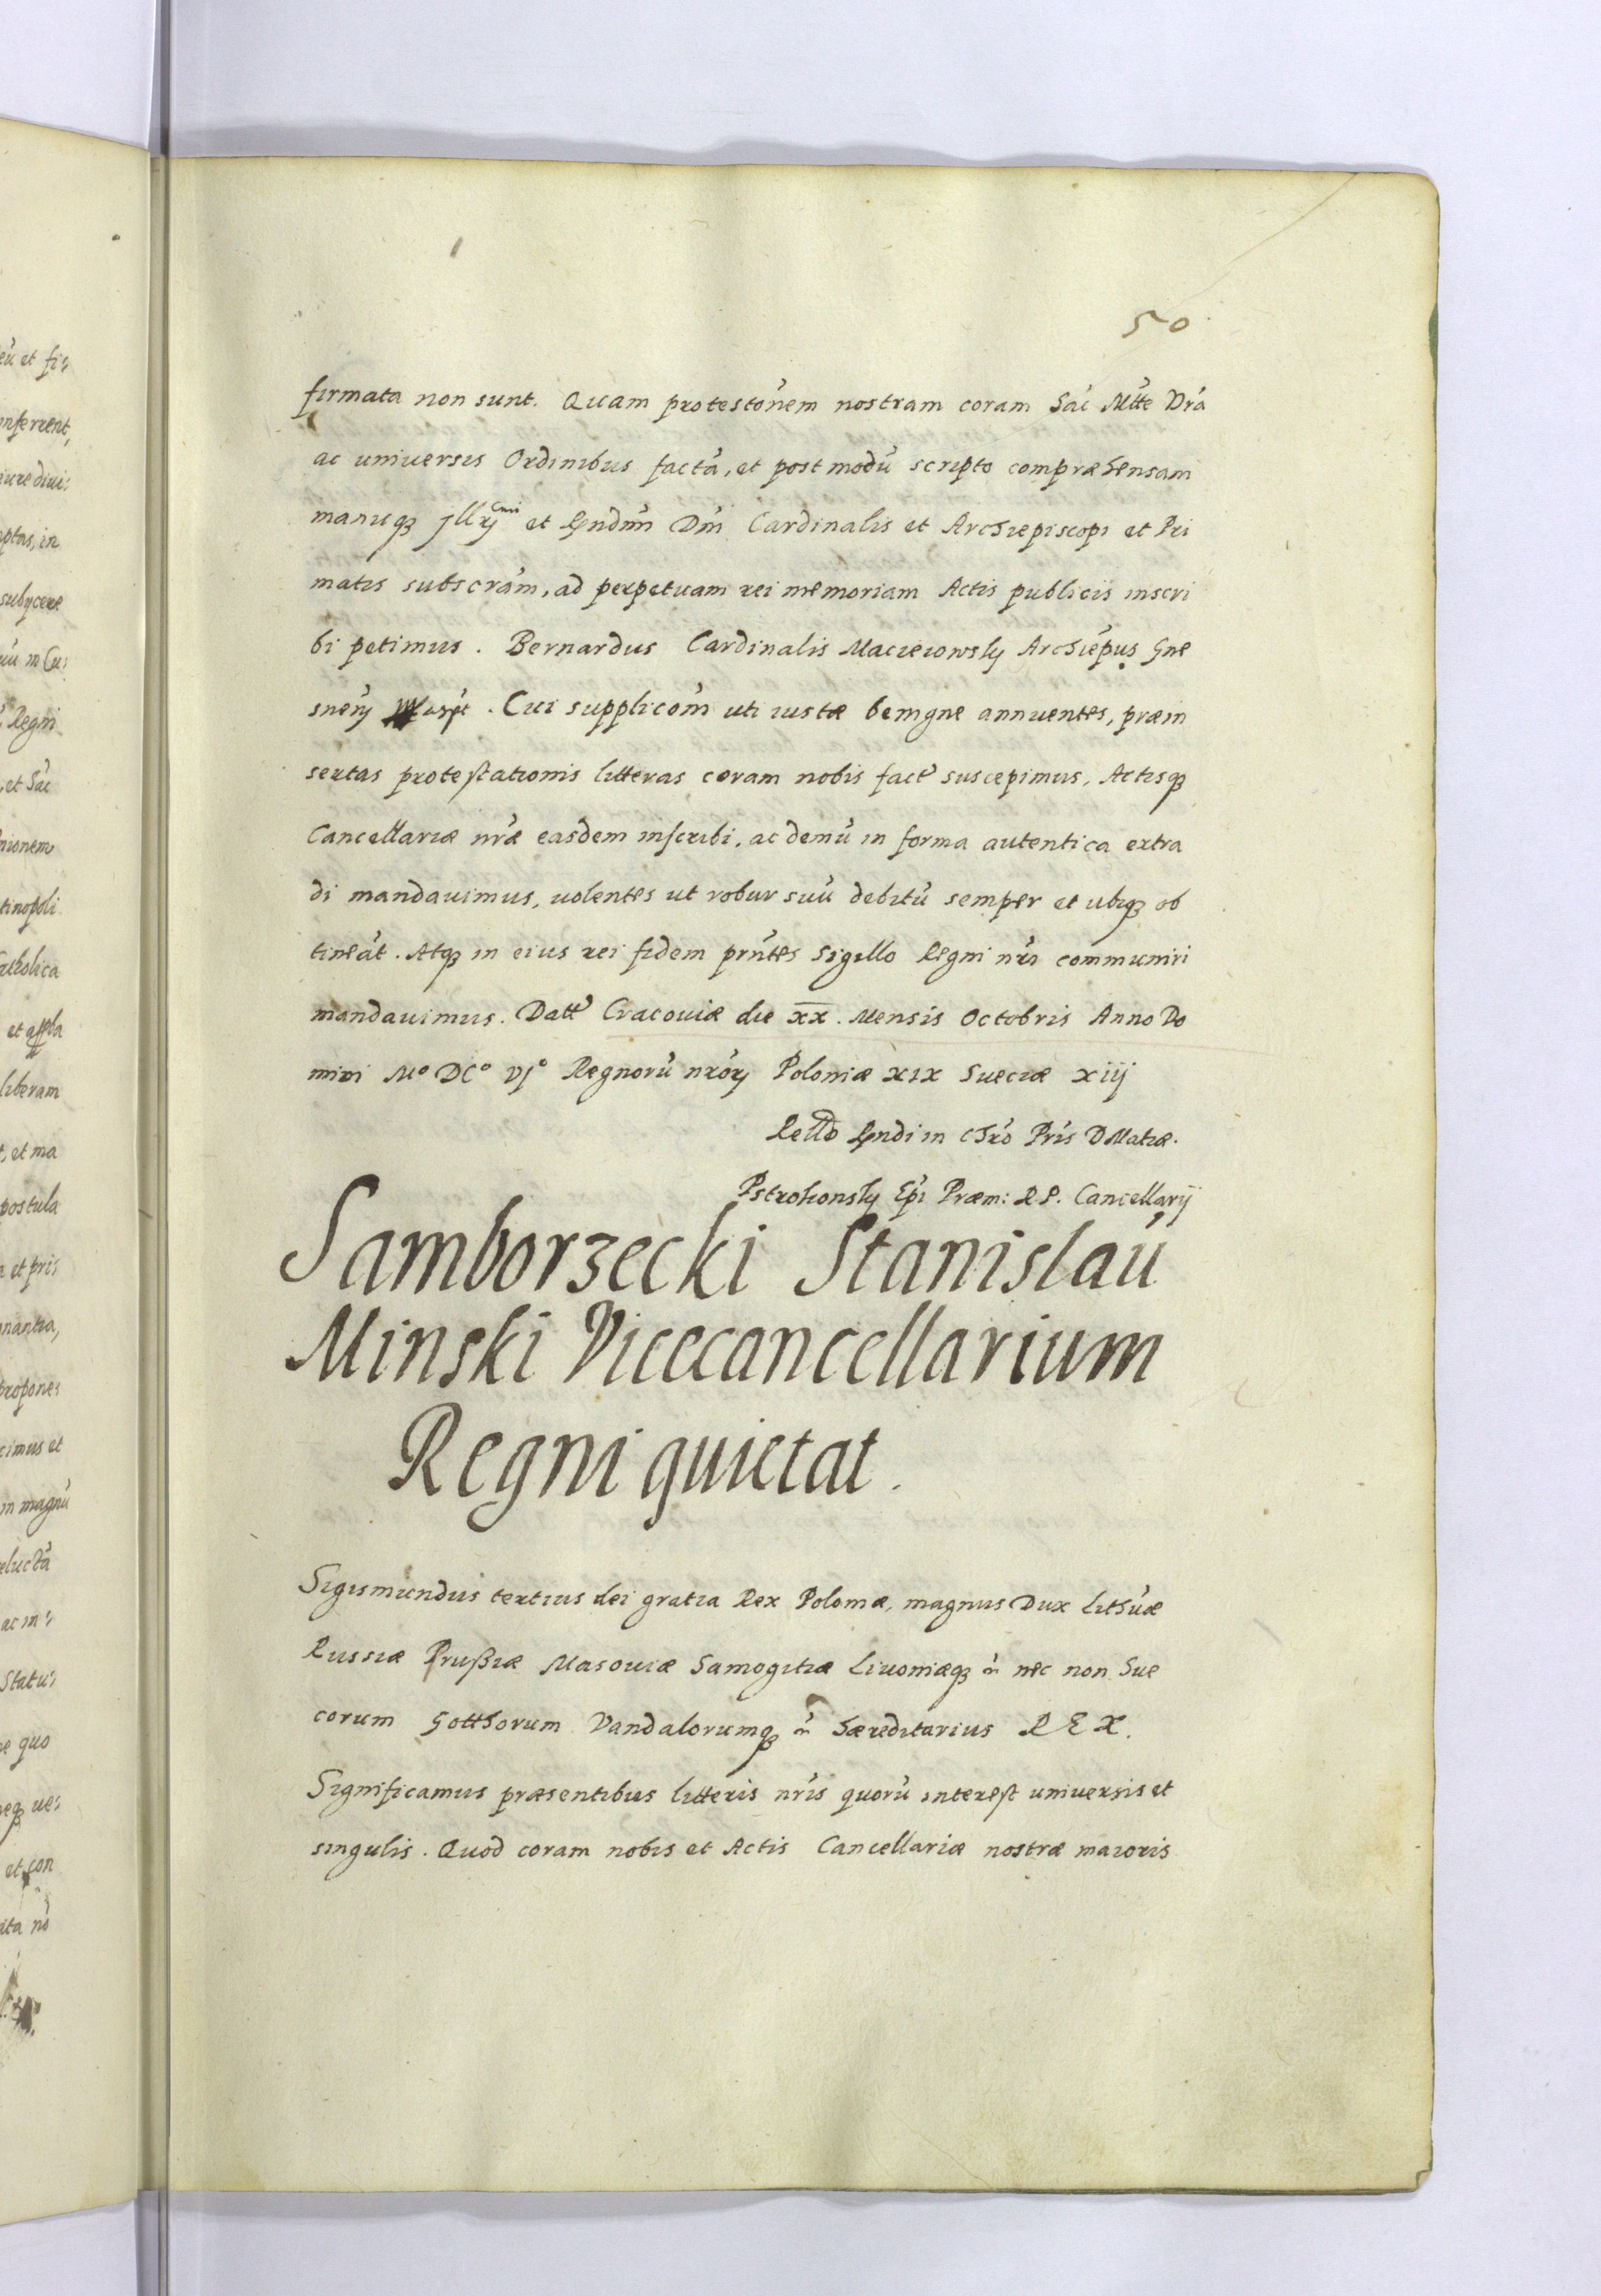 50
firmata non sunt. Quam protestoñem nostram coram Sac̃ Mt̃te Vr̃a
ac universis Ordinibus factã, et post modũ scripto compræhensam
manuq3 et Rndm̃ Dm̃ Cardinalis et Archiepiscopi et Pri
matis subscrãm, ad perpetuam rei memoriam Actis publicis inscri
bi petimus. Bernardus Cardinalis Macieiowsky Archiep̃us Gne
snen̄. Cui supplicõm uti iustæ benigne annuentes, præin
sertas protestationis litteras coram nobis fact̃ suscepimus, Actisq3
Cancellariæ nr̃æ easdem inscribi, ac demũ in forma autentica extra
di mandauimus, uolentes ut robur suũ debitũ semper et ubiq3 ob
tineãt. Atq3 in eius rei fidem prñtes Sigillo Regni nrĩ communiri
mandauimus. Datt̃ Cracouiæ die xx. Mensis Octobris Anno Do
mini Mº DCº VJº Regnorũ nrõꝝ Poloniæ XIX Sueciæ xiij
Rello Rndi in Chrõ Prĩs D Matiæ.
Pstrokonsky Ep̃i Præm: R P. Cancellarij
Samborzecki Stanislaũ
Minski Vicecancellarium
Regni quietat.
Sigismundus tertius dei gratia Rex Poloniæ, magnus Dux Lithũæ
Russiæ Prußiæ Masouiæ Samogitiæ Liuoniæq3 nec non Sue
corum Gotthorum Vandalorumq3 hæreditarius REX.
Significamus præsentibus litteris nrĩs quorũ interest universis et
singulis. Quod coram nobis et Actis Cancellariæ nostræ maioris